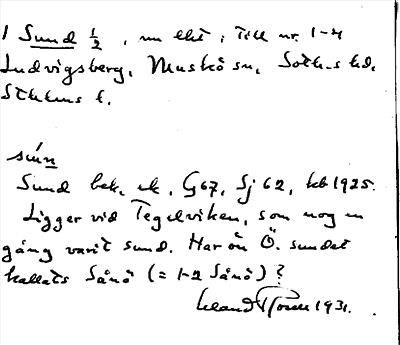 1 Sund ½, nu eht i Till nr. 1-4
Ludvigsberg, Muskö sn, Soth-s hd,
Sthlms l.
sún
Sund bek. ek. G67, Sj 62, kb 1925.
Ligger vid Tegelviken, som nog en
gång varit sund. Har ön Ö. sundet
kallats Sånö (= 1-2 Sånö)?
1931.